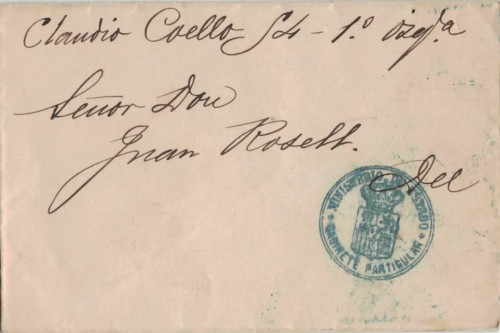 Claudio Coello, 54 - 1.º izqda
Señor Don
Juan Rosell.
MINISTERIO DE ESTADO
* GABINETE PARTICULAR *